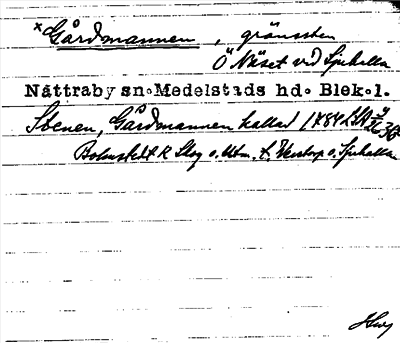 ×Gårdmannen, gränssten
Ö Näset vid Sjuhalla
Nättraby sn. Medelstads hd. Blek.l.
Stenen, Gårdmannen kallad 1784 LSA
Bolmstedt R Skog o. Utm. t. Verstorp o. Sjuhalla